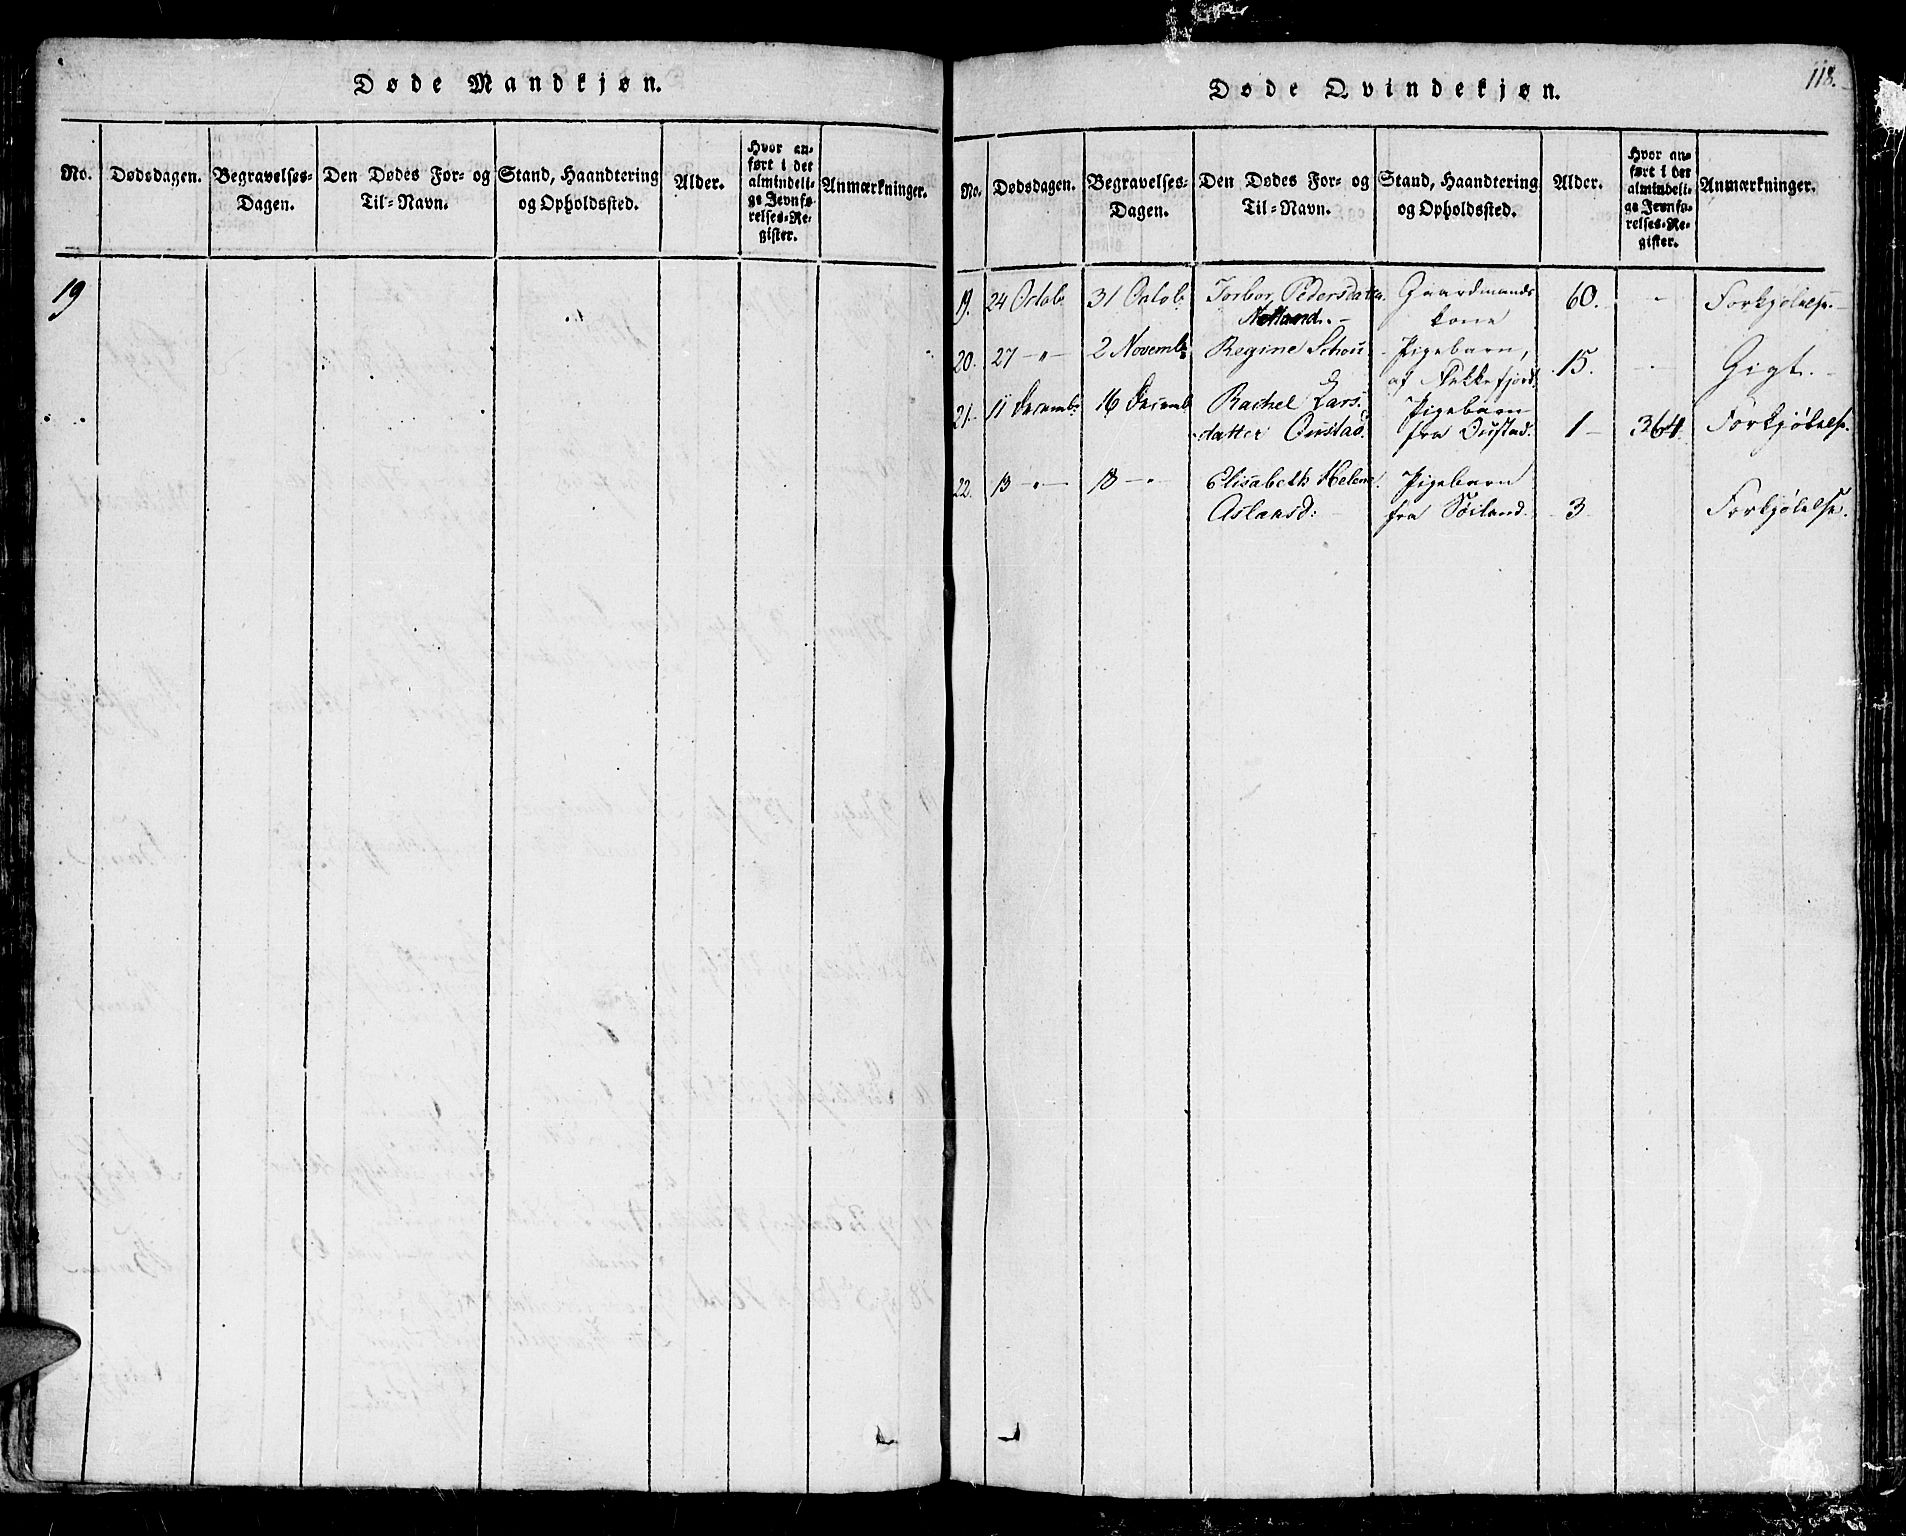 Døde Mandkjøn.
No.
Dødsdagen.
Begravelses-
Dagen.
Den Dødes For- og
Til-Navn.
Stand, Haandtering
og Opholdssted.
Alder.
Hvor an-
ført i det
almindeli-
ge Jevnfø-
relses-Re-
gister.
Anmærkninger.
19
118.
Døde Qvindekjøn.
No.
Dødsdagen.
Begravelses-
Dagen.
Den Dødes For- og
Til-Navn.
Stand, Haandtering
og Opholdssted.
Alder.
Hvor an-
ført i det
almindeli-
ge Jevnfø-
relses-Re-
gister.
Anmærkninger.
19. 24 Octob. 31 Octob. Torbor Pedersdatter Gaardmands 60. - Forkjølelse.
Netland. kone
20. 27 -"- 2 Novemb. Regine Schou Pigebarn, 15. - Gigt.
af Rekkefjord.
21. 11 Decemb. 16 Decemb. Rachel Lars- Pigebarn
datter Oustad. fra Oustad. 1 364. Forkjølelse.
22. 13 -"- 18 -"- Elisabeth Helene Pigebarn
Aslaksd: fra Søiland. 3 Forkjølelse.